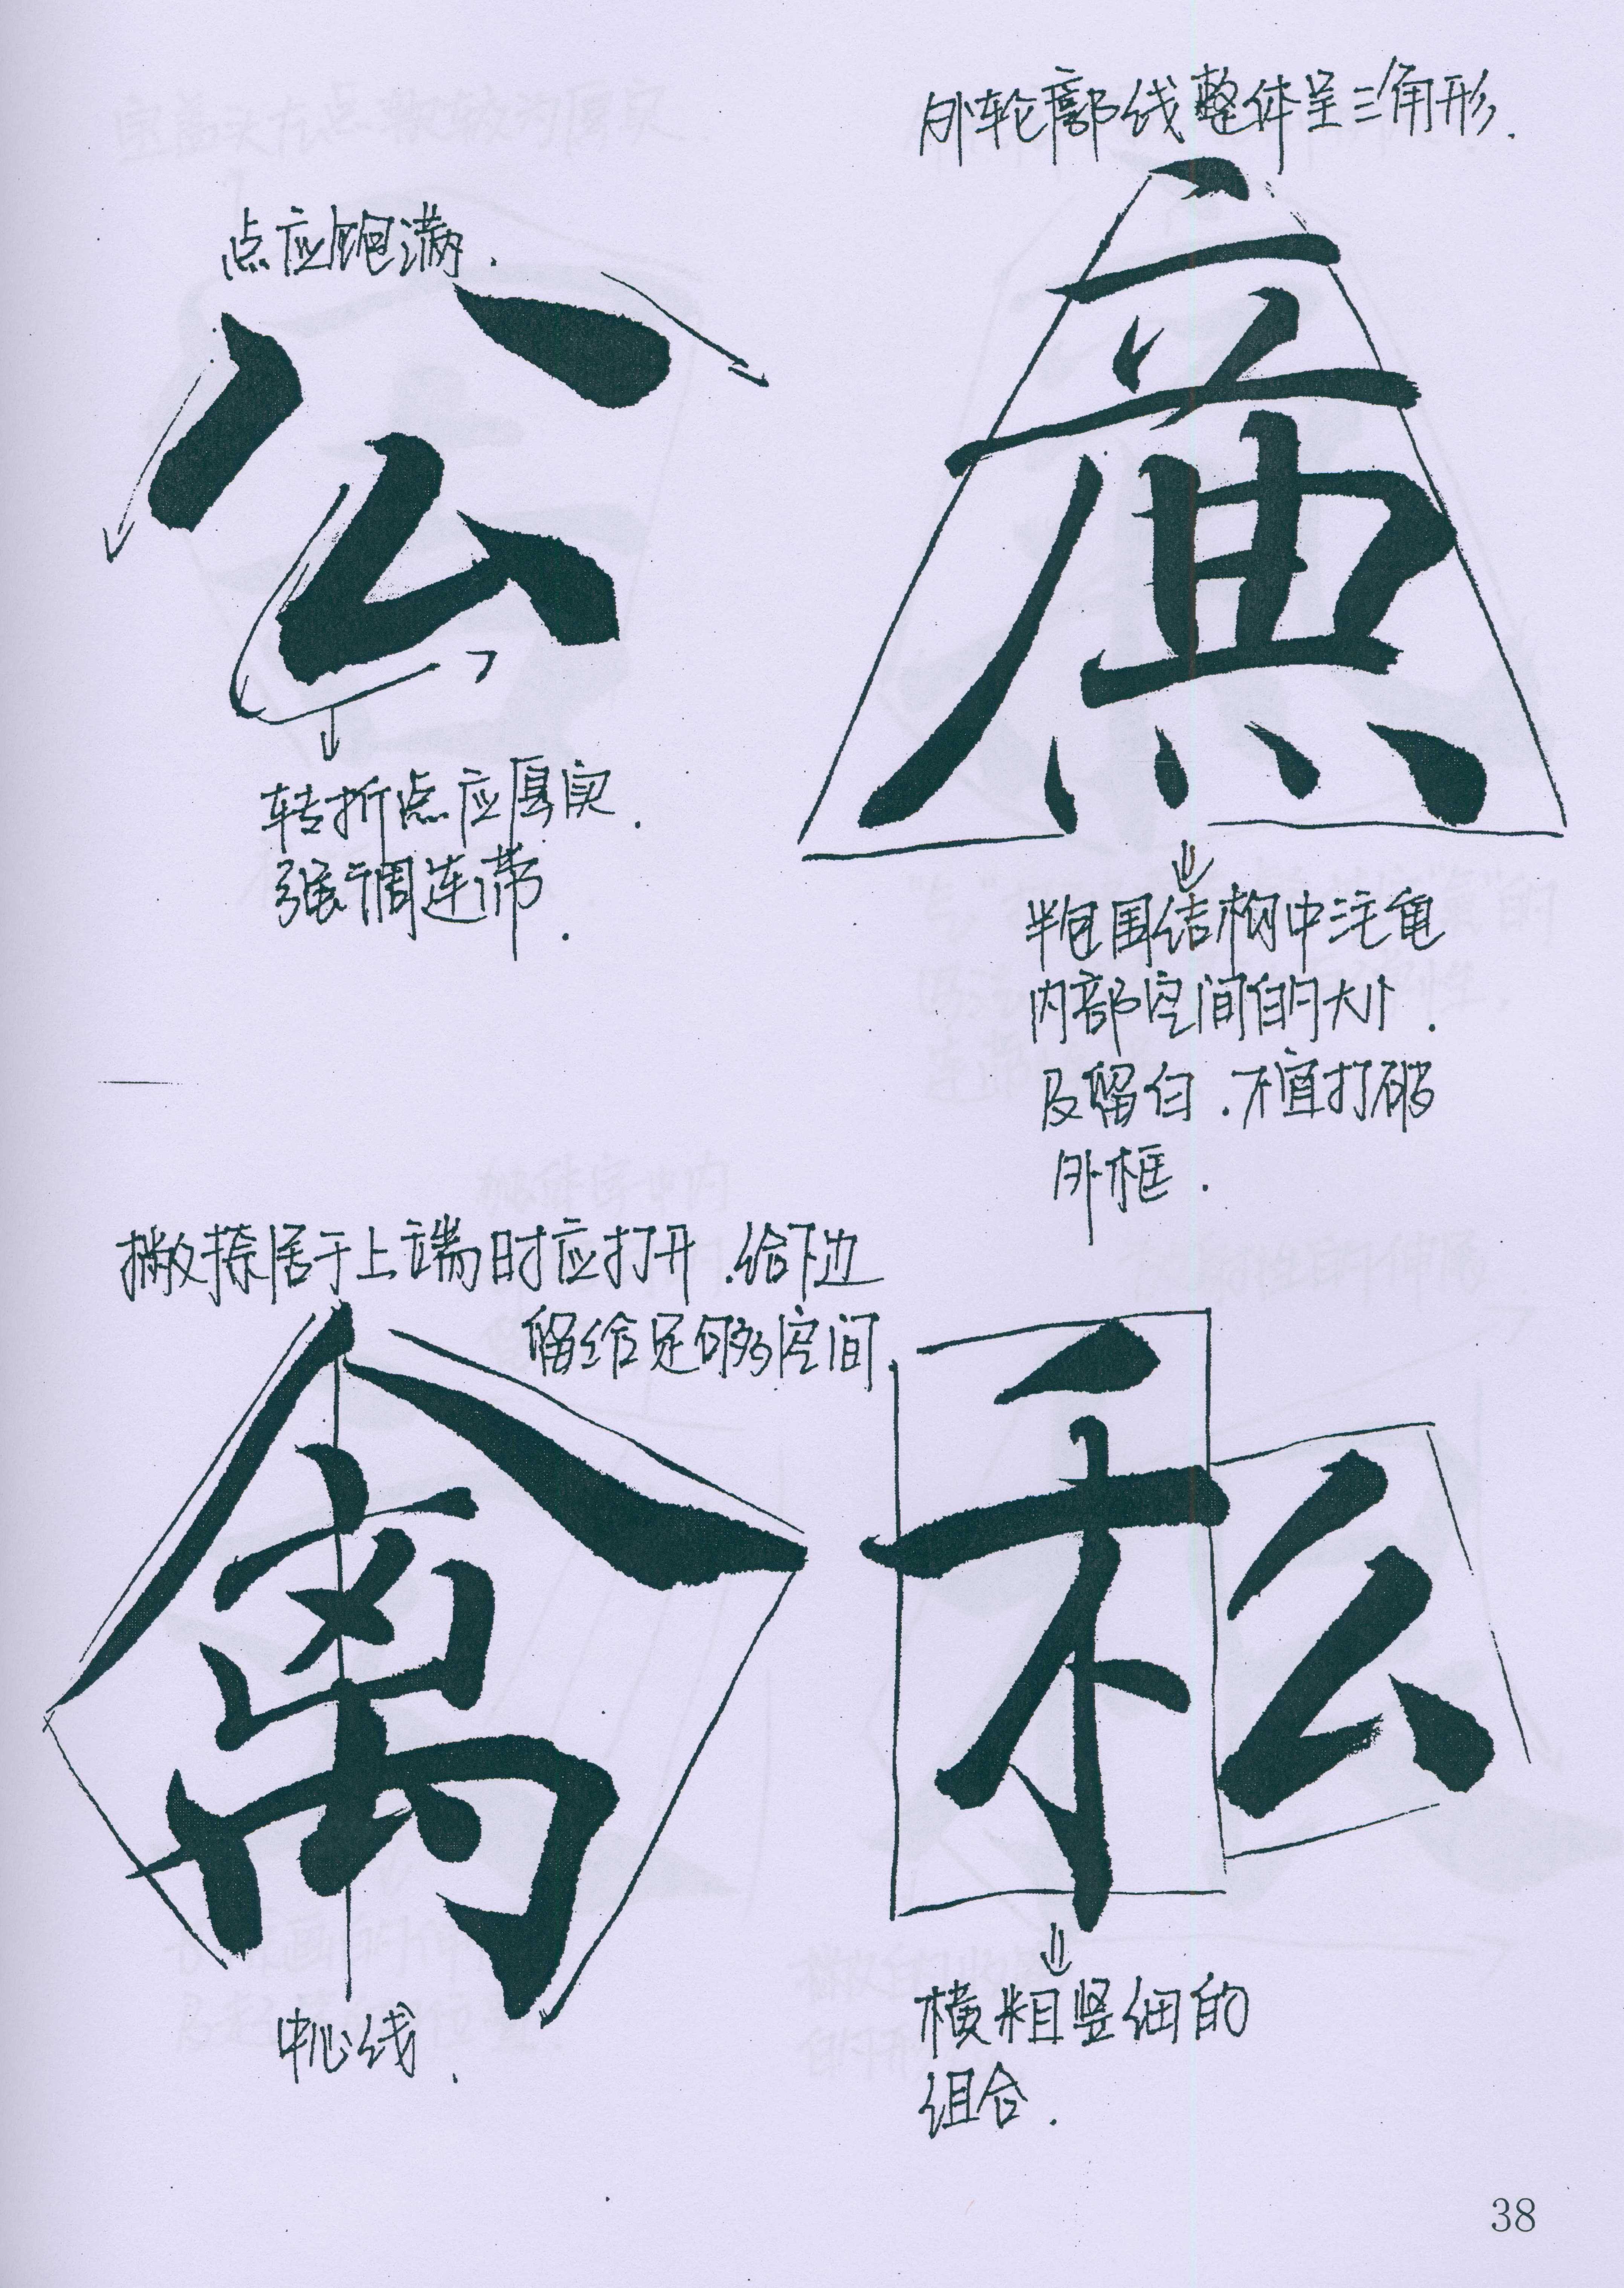 外轮廓线整体呈三角形.
点应饱满.
公
廉
转折点应厚实.
强调连带.
半包围结构中注重
内部空间的大小.
及留白.不宜打破
外框.
撇捺居于上端时应打开.给下边
留给足够空间.
禽
私
中心线.
横粗竖细的
组合.
38